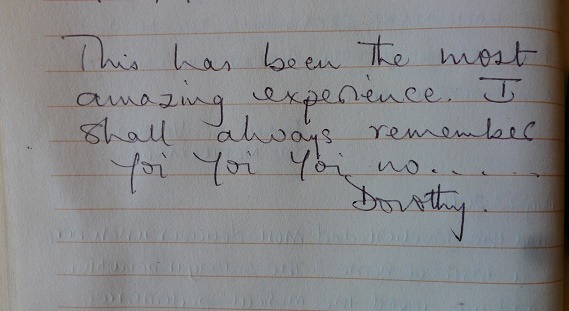 This has been the most
amazing experience. I
shall always remember
Yoi Yoi Yoi no......
Dorothy.